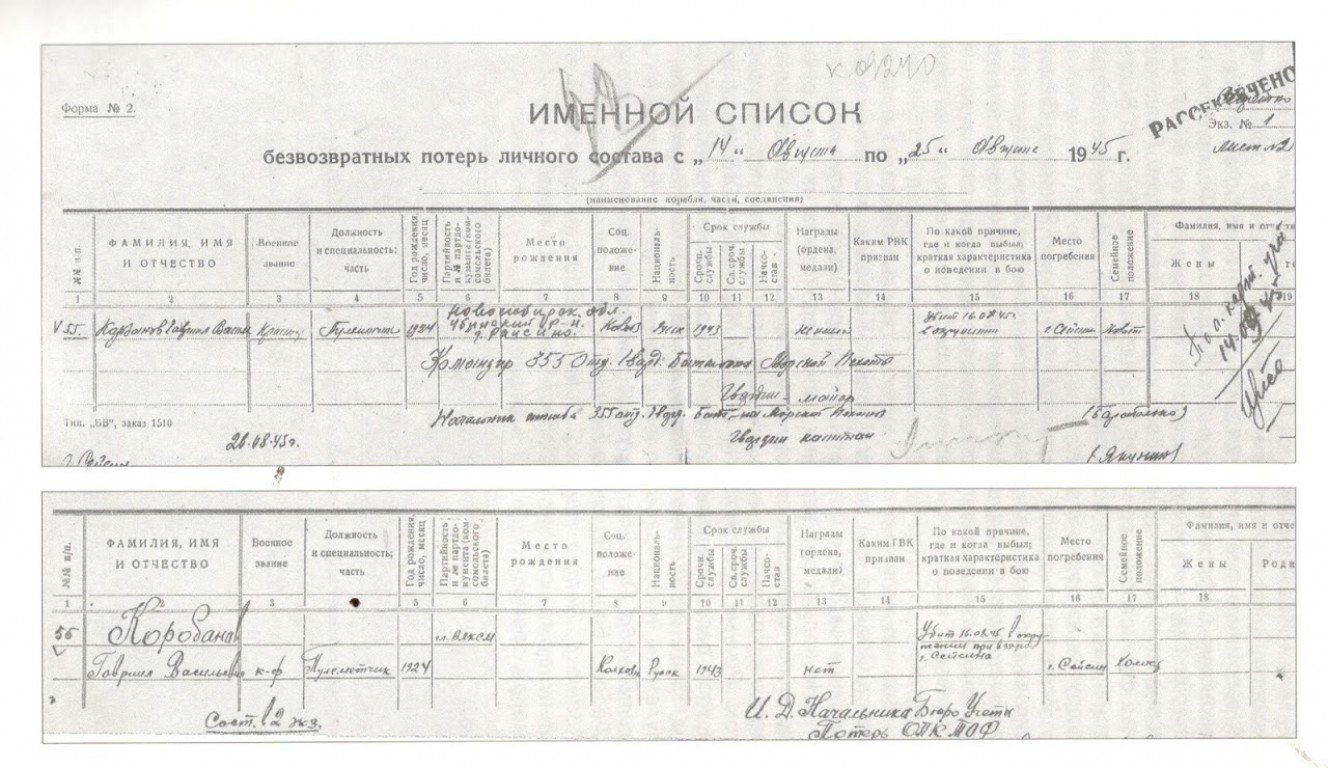 к09240
Форма № 2.
ИМЕННОЙ СПИСОК
РАССЕКРЕЧЕНО
Экз. № 1
лист № 2
безвозвратных потерь личного состава с „14" Августа по „25" Августа 1945 г.
(наименование корабля, части, соединения)
№№ п.п. ФАМИЛИЯ, ИМЯ И ОТЧЕСТВО Военное звание Должность и специальность; часть Год рождения, число, месяц Партийность и № партдокумента (комсомольского билета) Место рождения Соц. положение Национальность Срок службы Срочн. службы Св. сроч. службы Начсостав Награды (ордена, медали) Каким РВК призван По какой причине, где и когда выбыл; краткая характеристика о поведении в бою Место погребения Семейное положение Фамилия, имя и отчество Жены
1 2 3 4 5 6 7 8 9 10 11 12 13 14 15 16 17 18 19
Новосибирск. обл.
V 55. Гавриил Васил 1924 Русск 1943 Убит 16.08.45г. в окружении г. Сейсин
Командир 355 Отд. Гвард. Батальона Морской Пехоты
Гвардии - майор
Начальник штаба 355 отд. Гвард. Бат-на Морской Пехоты (Барабалько)
Тип. „БВ", заказ 1510
26.08.45г. Гвардии капитан
г. Сейсин (Якунин)
№№ п/п. ФАМИЛИЯ, ИМЯ И ОТЧЕСТВО Военное звание Должность и специальность; часть Год рождения, число, месяц Партийность и № партдокумента (комсомольского билета) Место рождения Соц. положение Национальность Срок службы Срочн. службы Св. сроч. службы Начсостав Награды (ордена, медали) Каким ГВК призван По какой причине, где и когда выбыл; краткая характеристика о поведении в бою Место погребения Семейное положение Фамилия, имя и отче Жены Роди
1 2 3 5 6 7 8 9 10 11 12 13 14 15 16 17 18
56 Коробана чл. ВЛКСМ Убит 16.08.45 в окружении при взятии г. Сейсина
Гавриил Васильевич к-ф Пулеметчик 1924 Колхозн Русск 1943 нет г. Сейсин Холост
Сост. в 2 экз.
И. Д. Начальника Бюро Учета
Потерь ОМК ТОФ